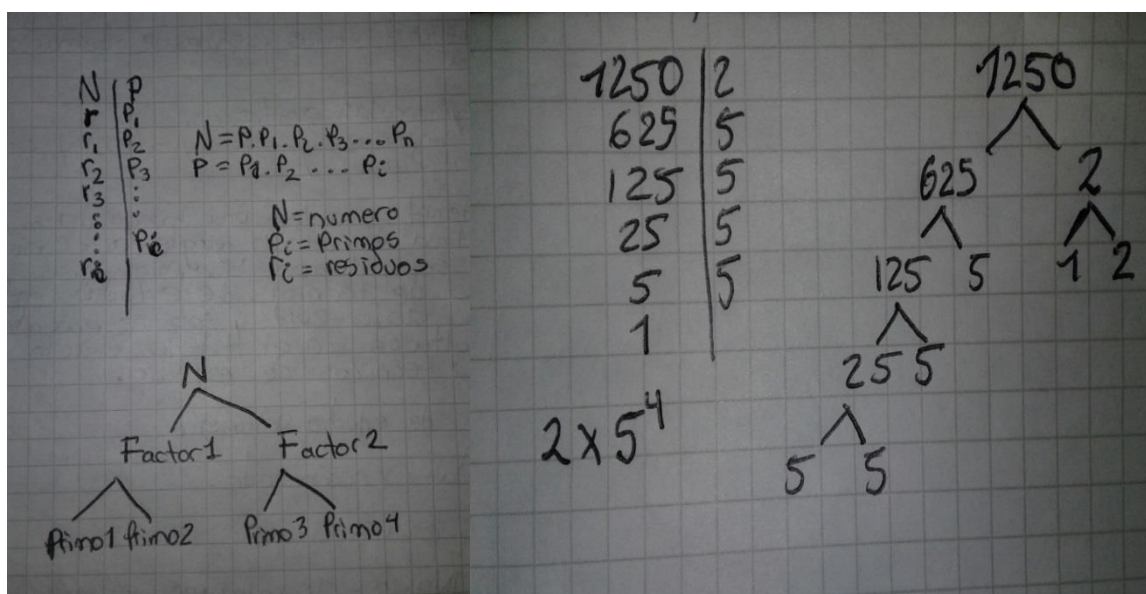 N | P
r | P₁
r₁ | P₂
r₂ | P₃
r₃ | :
: | :
rᵢ | Pᵢ
N = P.P₁.P₂.P₃...Pₙ
P = P₁.P₂...Pᵢ
N = numero
Pᵢ = Primos
rᵢ = residuos
N
Factor1 Factor2
Primo1 Primo2 Primo3 Primo4
1250 | 2
625 | 5
125 | 5
25 | 5
5 | 5
1 |
2 x 5⁴
1250
625 2
125 5 1 2
25 5
5 5